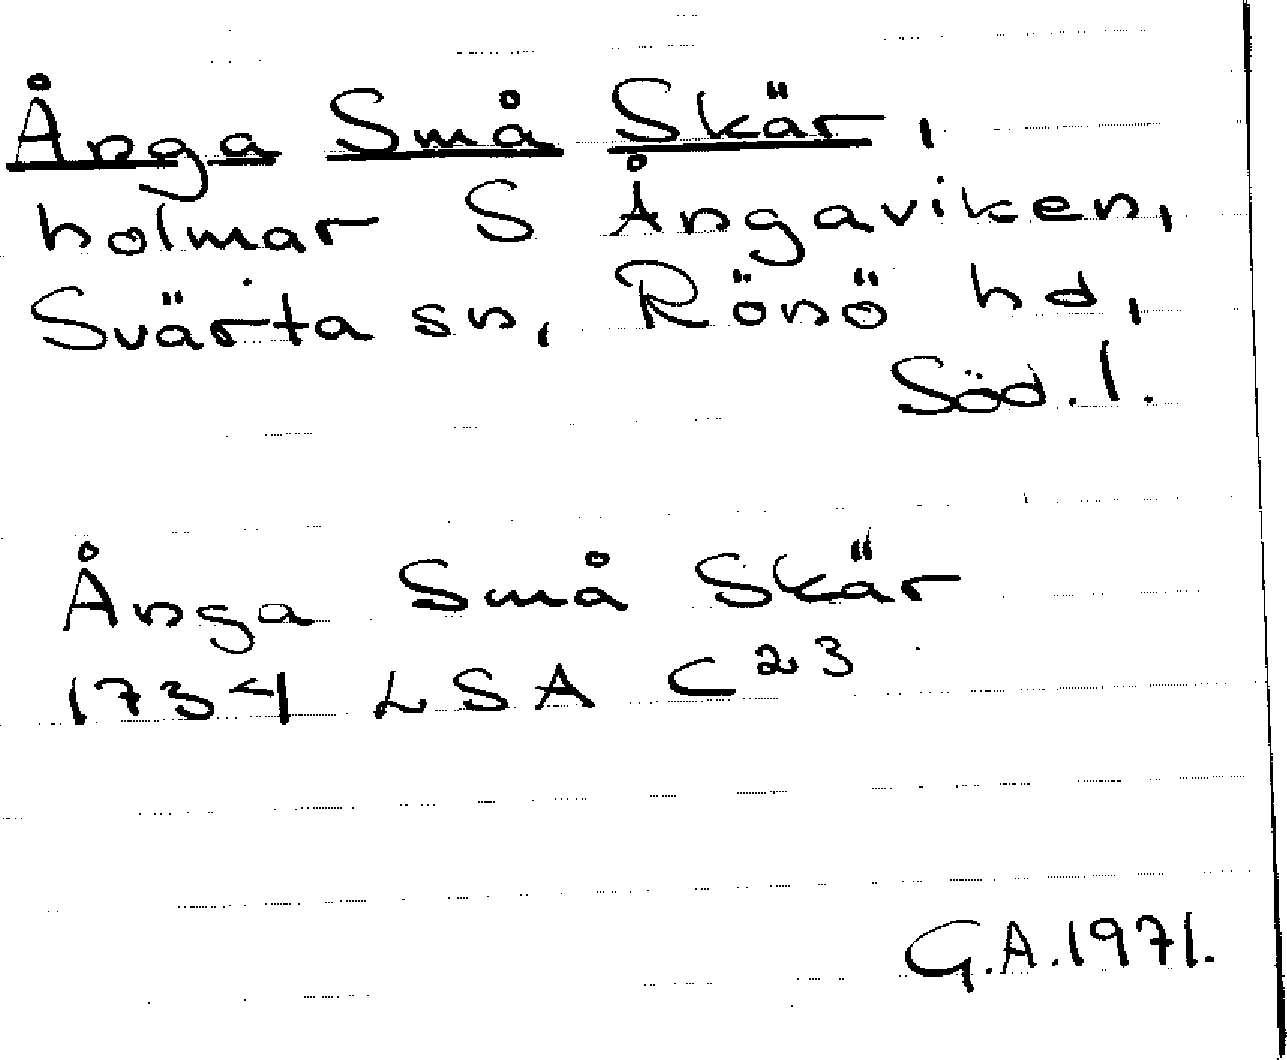 Ånga Små Skär,
holmar S Ångaviken,
Svärta sn, Rönö hd,
Söd. l.
Ånga Små Skär
1734 LSA C23
G.A.1971.